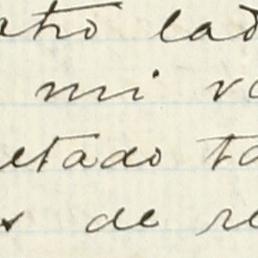 otro lad
mi va
etado ta
s de re